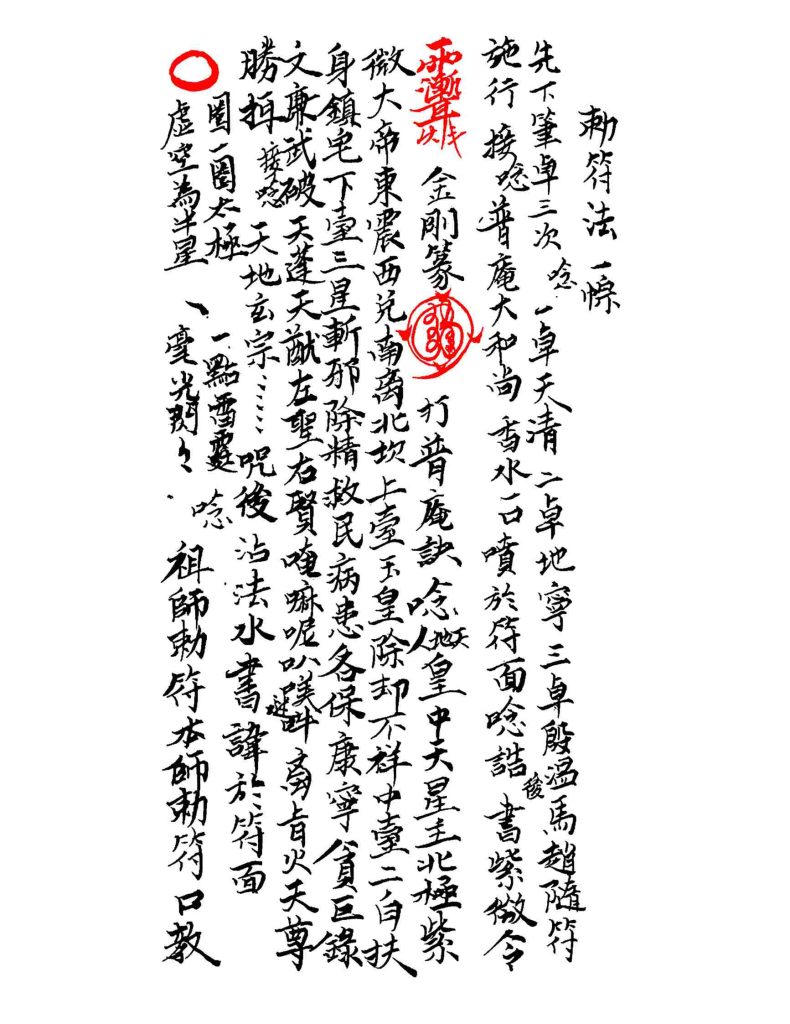 勅符法一
先下筆卓三次 唸 一卓天清二卓地寧三卓殷溫馬趙隨符
施行 接唸 普庵大和尚香水一口噴於符面唸誥後書紫微令
金剛篆 打普庵訣唸天地人皇中天星主北極紫
微大帝東震西兌南离北坎上臺玉皇除却不祥中臺二白扶
身鎮宅下臺三星斬邪除精救民病患各保康寧貪巨錄
文廉武破天蓬天猷左聖右賢唵嘛呢叭 吽 火天尊
勝 接唸 天地玄宗……咒後沾法水書諱於符面
圈一圈太極 一點雷霆 唸
虛空為斗星 丶毫光閃々 祖師勅符本師勅符口教